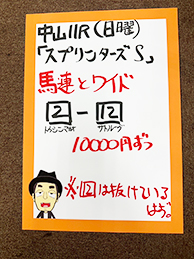 中山11R(日曜)
「スプリンターズS」
馬連とワイド
2-12
トウシンマカオ サトノレーヴ
10000円ずつ
※12は抜けている
はず。